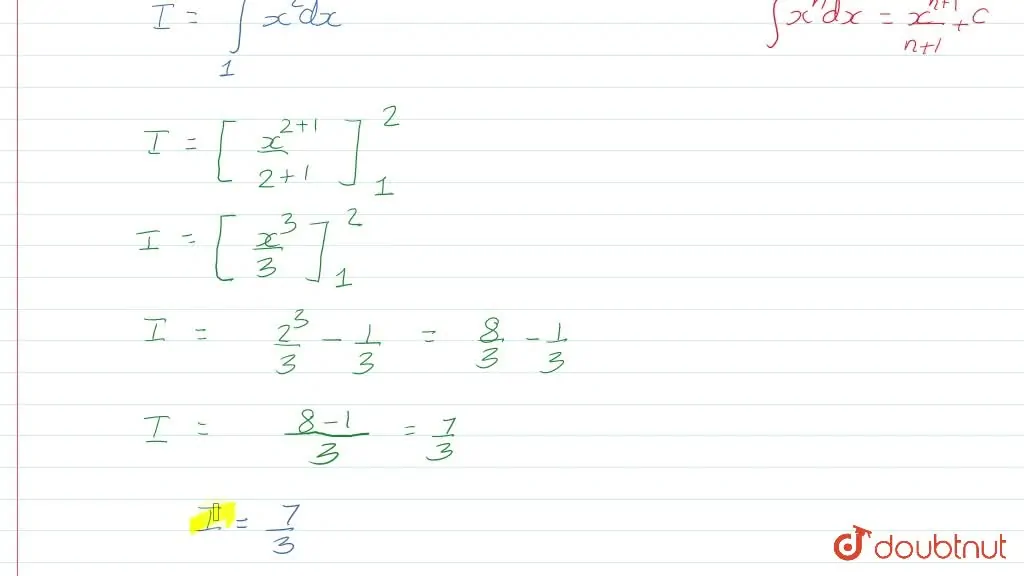 I = ∫₁ x²dx
∫xⁿdx = xⁿ⁺¹/n+1 + c
I = [x²⁺¹/2+1]₁²
I = [x³/3]₁²
I = 2³/3 - 1/3 = 8/3 - 1/3
I = 8-1/3 = 7/3
I = 7/3
doubtnut